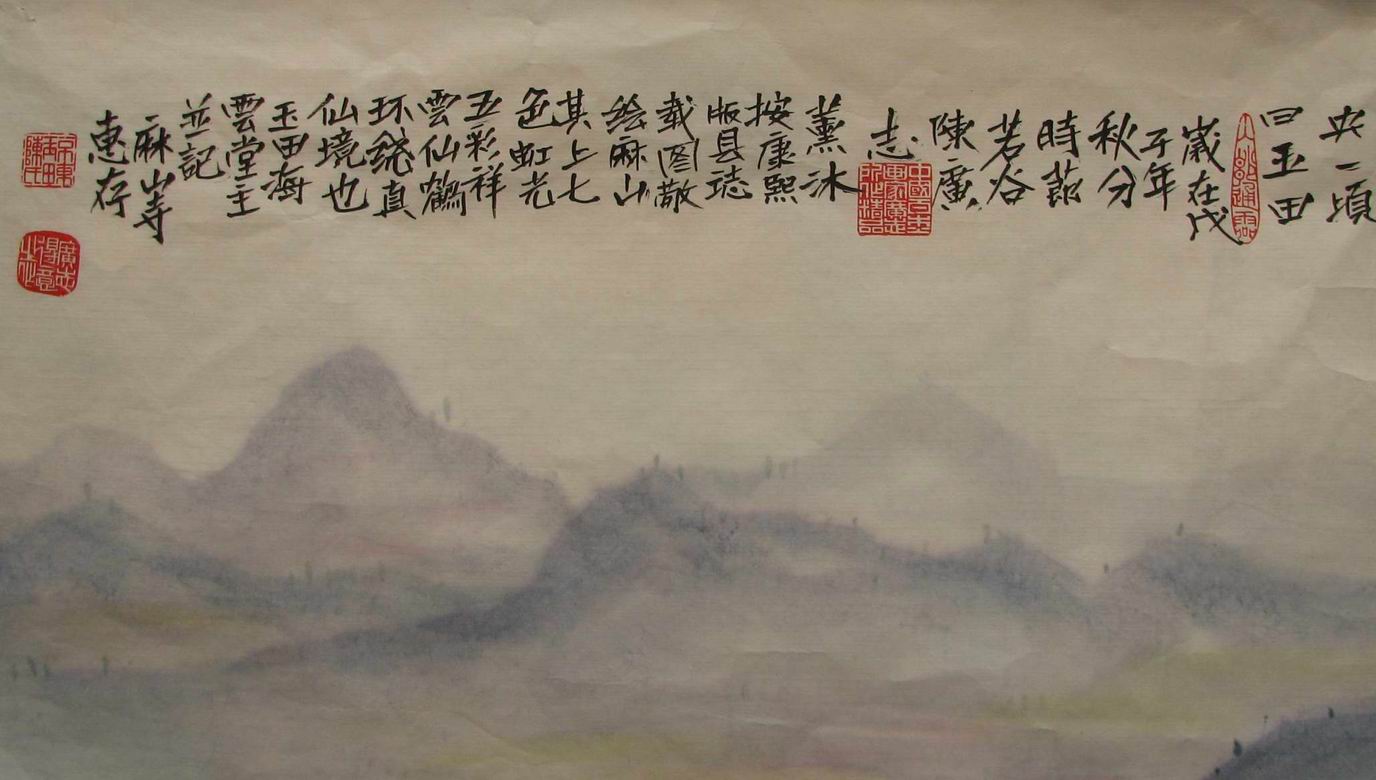 央一頃
曰玉田
歲在戊
子年
秋分
時節
若谷
陳廣
志
薰沐
按康熙
版县誌
载图敬
绘麻山
其上七
色虹光
五彩祥
雲仙鶴
环繞真
仙境也
玉田海
雲堂主
並記
麻山寺
惠存
廣志
得意
之作